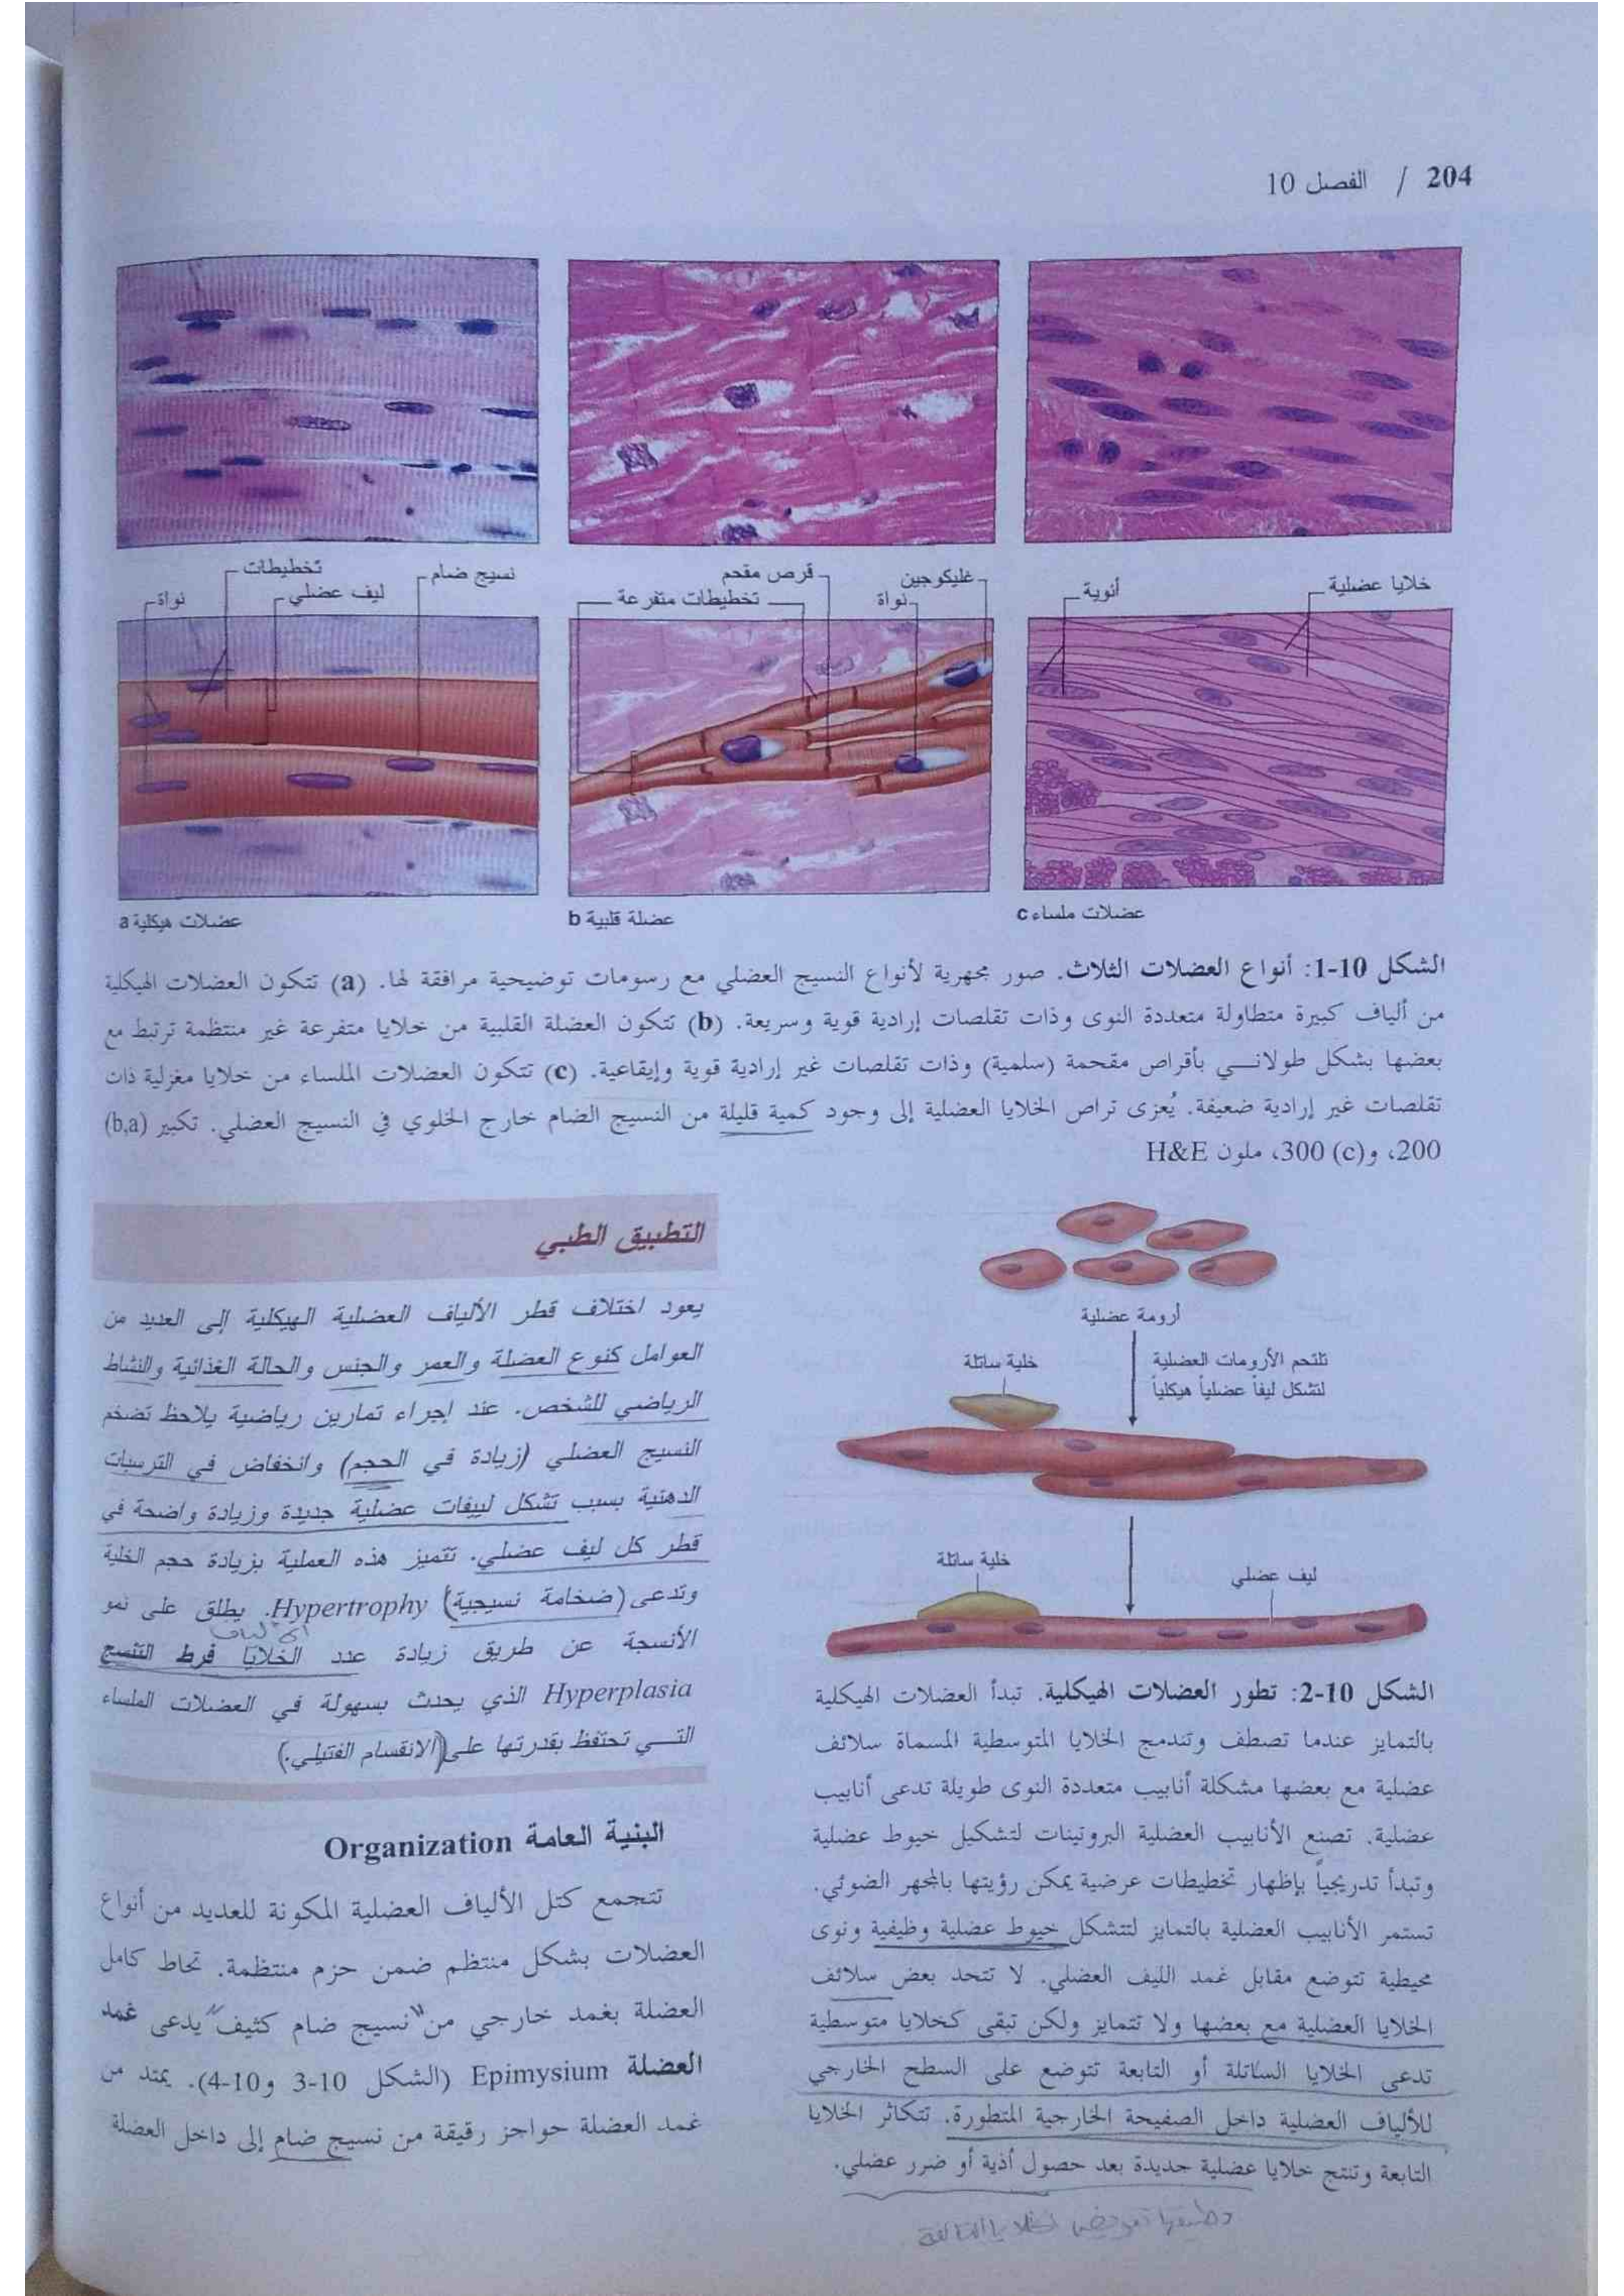 204 / الفصل 10
تخطيطات
نسيج ضام
نواة
ليف عضلي
قرص مقحم
غليكوجين
تخطيطات متفرعة
نواة
أنوية
خلايا عضلية
عضلات هيكلية a
عضلة قلبية b
عضلات ملساء c
الشكل 10-1: أنواع العضلات الثلاث. صور مجهرية لأنواع النسيج العضلي مع رسومات توضيحية مرافقة لها. (a) تتكون العضلات الهيكلية
من ألياف كبيرة متطاولة متعددة النوى وذات تقلصات إرادية قوية وسريعة. (b) تتكون العضلة القلبية من خلايا متفرعة غير منتظمة ترتبط مع
بعضها بشكل طولاني بأقراص مقحمة (سلمية) وذات تقلصات غير إرادية قوية وإيقاعية. (c) تتكون العضلات الملساء من خلايا مغزلية ذات
تقلصات غير إرادية ضعيفة. يُعزى تراص الخلايا العضلية إلى وجود كمية قليلة من النسيج الضام خارج الخلوي في النسيج العضلي. تكبير (b,a)
200، و(c) 300، ملون H&E
أرومة عضلية
خلية ساتلة
تلتحم الأرومات العضلية
لتشكل ليفاً عضلياً هيكلياً
خلية ساتلة
ليف عضلي
الشكل 10-2: تطور العضلات الهيكلية. تبدأ العضلات الهيكلية
بالتمايز عندما تصطف وتندمج الخلايا المتوسطية المسماة سلائف
عضلية مع بعضها مشكلة أنابيب متعددة النوى طويلة تدعى أنابيب
عضلية. تصنع الأنابيب العضلية البروتينات لتشكيل خيوط عضلية
وتبدأ تدريجياً بإظهار تخطيطات عرضية يمكن رؤيتها بالمجهر الضوئي.
تستمر الأنابيب العضلية بالتمايز لتتشكل خيوط عضلية وظيفية ونوى
محيطية تتوضع مقابل غمد الليف العضلي. لا تتحد بعض سلائف
الخلايا العضلية مع بعضها ولا تتمايز ولكن تبقى كخلايا متوسطية
تدعى الخلايا الساتلة أو التابعة تتوضع على السطح الخارجي
للألياف العضلية داخل الصفيحة الخارجية المتطورة. تتكاثر الخلايا
التابعة وتنتج خلايا عضلية جديدة بعد حصول أذية أو ضرر عضلي.
التطبيق الطبي
يعود اختلاف قطر الألياف العضلية الهيكلية إلى العديد من
العوامل كنوع العضلة والعمر والجنس والحالة الغذائية والنشاط
الرياضي للشخص. عند إجراء تمارين رياضية يلاحظ تضخم
النسيج العضلي (زيادة في الحجم) وانخفاض في الترسبات
الدهنية بسبب تشكل لييفات عضلية جديدة وزيادة واضحة في
قطر كل ليف عضلي. تتميز هذه العملية بزيادة حجم الخلية
وتدعى (ضخامة نسيجية) Hypertrophy. يطلق على نمو
الألياف
الأنسجة عن طريق زيادة عدد الخلايا فرط التنسج
Hyperplasia الذي يحدث بسهولة في العضلات الملساء
التي تحتفظ بقدرتها على (الانقسام الفتيلي.)
البنية العامة Organization
تتجمع كتل الألياف العضلية المكونة للعديد من أنواع
العضلات بشكل منتظم ضمن حزم منتظمة. تحاط كامل
العضلة بغمد خارجي من "نسيج ضام كثيف" يدعى غمد
العضلة Epimysium (الشكل 10-3 و10-4). يمتد من
غمد العضلة حواجز رقيقة من نسيج ضام إلى داخل العضلة